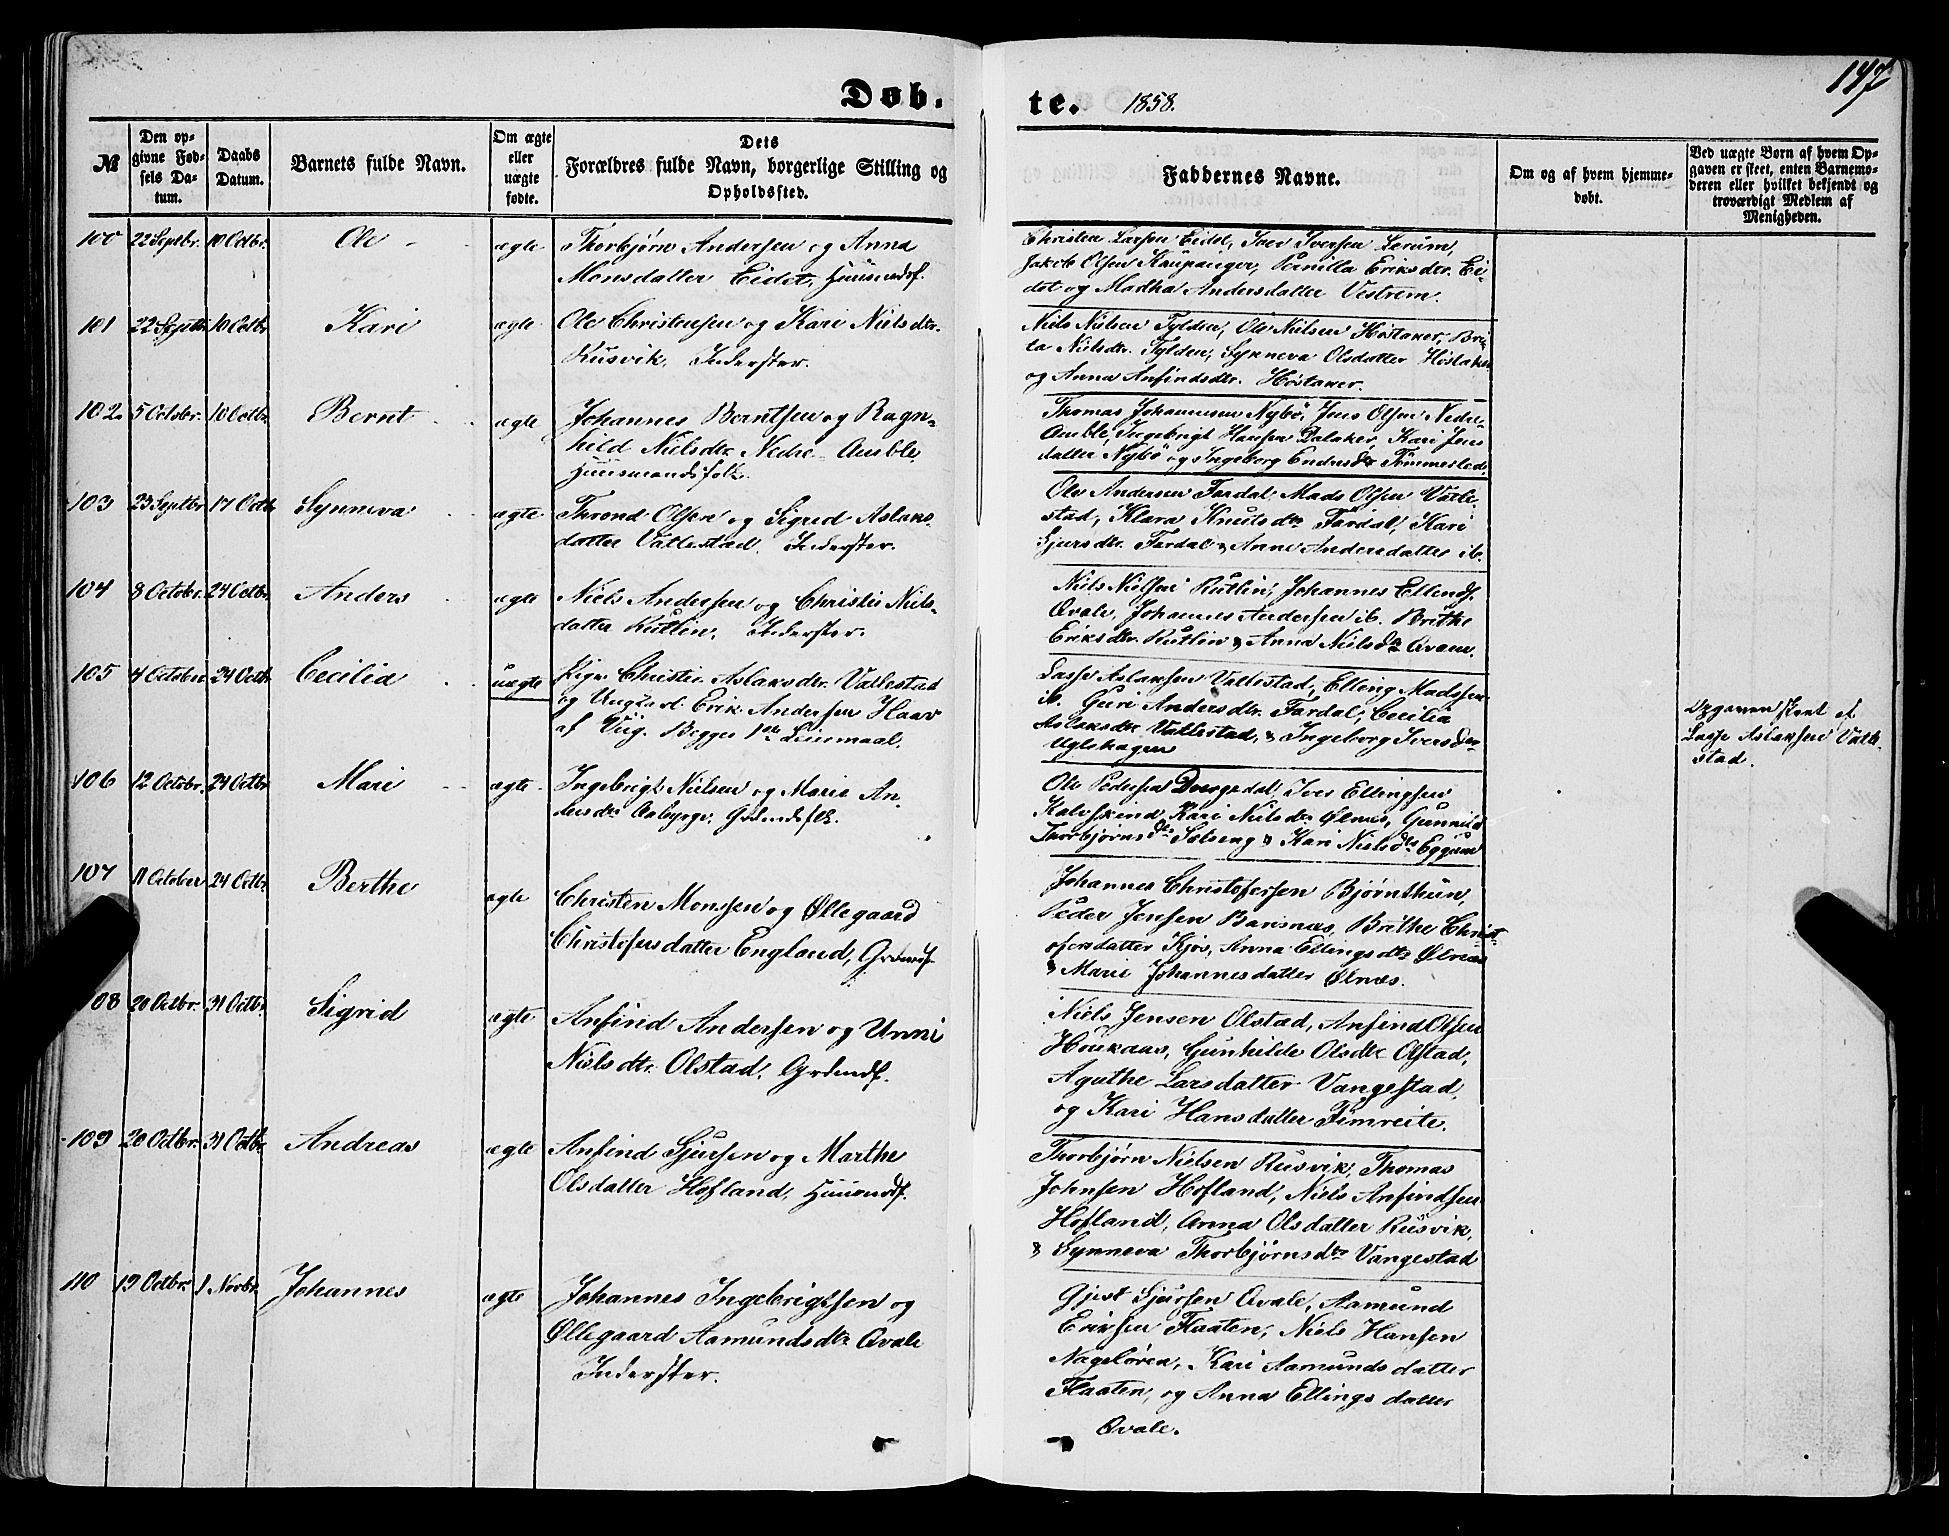 Døb.
te. 1858.
147
№
Den op-
givne Fød-
sels Da-
tum.
Daabs
Datum.
Barnets fulde Navn.
Om ægte
eller
uægte
fødte.
Dets
Forældres fulde Navn, borgerlige Stilling og
Opholdssted.
Faddernes Navne.
Om og af hvem hjemme-
døbt.
Ved uægte Børn af hvem Op-
gaven er skeet, enten Barnemo-
deren eller hvilket bekjendt og
troværdigt Medlem af
Menigheden.
100 22 Septbr. 10 Octbr. Ole ægte Thorbjørn Andersen og Anna
Monsdatter Eidet, Huusmdsf.
Christen Larsen Eidet, Iver Iversen Lerum,
Jakob Olsen Kaupanger, Pernilla Eriksdtr. Ei-
det og Madtha Andersdatter Vestrem.
101 22 Septbr. 10 Octbr. Kari ægte Ole Christensen og Kari Nielsdtr.
Rusvik. Inderster.
Niels Nielsen Tylden, Ole Nielsen Høstaker, Bri-
ta Nielsdtr. Tylden, Synneva Olsdatter Høstaker
og Anna Anfindsdtr. Høstaker.
102 5 Octobr. 10 Octbr. Bernt ægte Johannes Berntsen og Ragn-
hild Nielsdtr. Nedre-Amble,
Huusmandsfolk.
Thomas Johannesen Nybø, Jens Olsen Nedre-
Amble, Ingebrigt Hansen Dalaker, Kari Jens
datter Nybø og Ingeborg Endresdtr Tømmerstad.
103 23 Septbr. 17 Octbr. Synneva ægte Thrond Olsen og Sigrid Aslaks-
datter Vallestad. Inderster.
Ole Andersen Fardal, Mads Olsen Valle-
stad, Klara Knutsdtr Fardal, Kari
Sjursdtr. Fardal & Anne Andersdatter ib.
104 8 October. 24 Octbr. Anders ægte Niels Andersen og Christi Niels-
datter Rutlin, Inderster.
Niels Nielsen Rutlin, Johannes Ellends.
Qvale, Johannes Andersen ib. Brithe
Eriksdtr. Rutlin & Anna Nielsdtr Qvam.
105 4 October 24 Octbr. Cecilia uægte Pige Christi Aslaksdtr. Vallestad
og Ungkarl Erik Andersen Haav
af Viig. Begges 1ste Leiermaal.
Lasse Aslaksen Vallestad, Elling Madssen
ib. Guri Andersdtr. Fardal, Cecilia
Aslaksdtr Vallestad, & Ingeborg Iversdtr
Uglehagen
Opgaven skeet af
Lasse Aslaksen Valle-
stad.
106 12 Octobr. 24 Octbr Mari ægte Ingebrigt Nielsen og Marie An-
dersdtr Aabyrge, Grdmdsflk.
Ole Pedersen Dvergsdal, Iver Ellingsen
Kalvskind, Kari Nielsdtr Ølnes, Gunnild
Thorbjørnsdtr Selseng & Kari Nielsdtr Eggum
107 11 October 24 Octbr Berthe ægte Christen Monssen og Øllegaard
Christofersdatter England, Grdmdsf.
Johannes Christofersen Bjørnthun,
Peder Jensen Barsnæs, Brithe Christ-
ofersdatter Kjos, Anna Ellingsdtr Ølnæs
& Mari Johannesdatter Ølnæs.
108 20 Octbr. 31 Octbr. Sigrid ægte Anfind Andersen og Unni
Nielsdtr. Olstad, Grdmdsf.
Niels Jensen Olstad, Anfind Olsen
Houkaas, Gunhilde Olsdtr Olstad,
Agathe Larsdatter Vangestad,
og Kari Hansdatter Fimreite.
109 20 Octbr. 31 Octbr Andreas ægte Anfind Sjursen og Marthe
Olsdatter Hofland, Huusmdsf.
Thorbjørn Nielsen Rusvik, Thomas
Johnsen Hofland, Niels Anfindsen
Hofland, Anna Olsdatter Rusvik,
& Synneva Thorbjørnsdtr Vangestad
110 19 Octbr. 1. Novbr. Johannes ægte Johannes Ingebrigtsen og
Øllegaard Aamundsdtr. Qvale
Inderster.
Gjest Sjursen Qvale, Aamund
Eriksen Flaaten, Niels Hansen
Nageløren, Kari Aamundsdatter
Flaaten, og Anna Ellingsdatter
Qvale.